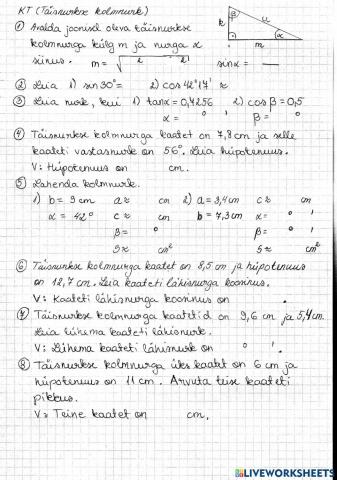 KT (Täisnurkne kolmnurk)
① Avalda joonisel oleva täisnurkse
kolmnurga külg m ja nurga α
siinus. m = √ ² ² sin α = —
k β u
m α
② Leia 1) sin 30° = 2) cos 42°17' ≈
③ Leia nurk, kui 1) tan α = 0,4256 2) cos β = 0,5
α = ° ' β = °
④ Täisnurkse kolmnurga kaatet on 7,8 cm ja selle
kaateti vastasnurk on 56°. Leia hüpotenuus.
V: Hüpotenuus on cm.
⑤ Lahenda kolmnurk.
1) b = 9 cm a ≈ cm 2) a = 3,4 cm c ≈ cm
α = 42° c ≈ cm b = 7,3 cm α = ° '
β = ° β = ° '
S ≈ cm² S ≈ cm²
⑥ Täisnurkse kolmnurga kaatet on 8,5 cm ja hüpotenuus
on 12,7 cm. Leia kaateti lähisnurga koosinus.
V: Kaateti lähisnurga koosinus on .
⑦ Täisnurkse kolmnurga kaatetid on 9,6 cm ja 5,4 cm.
Leia lühema kaateti lähisnurk.
V: Lühema kaateti lähisnurk on ° '.
⑧ Täisnurkse kolmnurga üks kaatet on 6 cm ja
hüpotenuus on 11 cm. Arvuta teise kaateti
pikkus.
V: Teine kaatet on cm.
LIVEWORKSHEETS